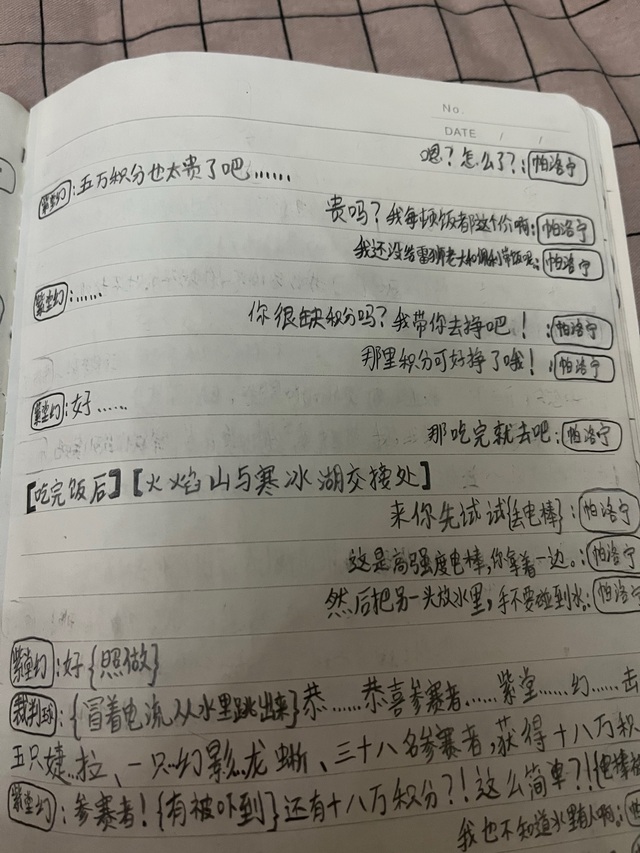 No.
DATE / /
嗯？怎么了？:帕洛宁
紫堂幻:五万积分也太贵了吧……
贵吗？我每顿饭都这个价啊:帕洛宁
我还没给雷狮老大和佩利带饭呢:帕洛宁
紫堂幻:……
你很缺积分吗？我带你去挣吧！:帕洛宁
那里积分可好挣了哦！:帕洛宁
紫堂幻:好……
那吃完就去吧:帕洛宁
【吃完饭后】【火焰山与寒冰湖交接处】
来你先试试{丢电棒}:帕洛宁
这是高强度电棒,你拿着一边。:帕洛宁
然后把另一头放水里，手不要碰到水。:帕洛宁
紫堂幻:好{照做}
裁判球:{冒着电流从水里跳出来}恭……恭喜参赛者……紫堂……幻……击
五只婕..拉、一只..幻影..龙蜥、三十八名参赛者,获得十八万积
紫堂幻:参赛者！{有被吓到}还有十八万积分？！这么简单？！{电棒
我也不知道水里有人啊。:帕